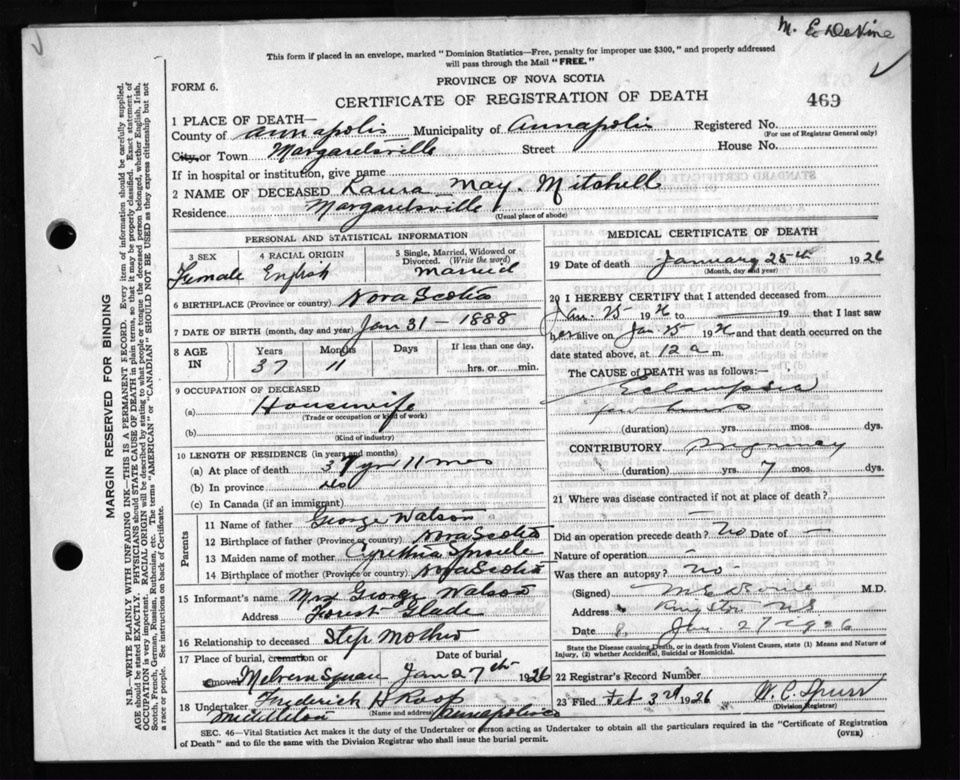 M. E. DeVine
This form if placed in an envelope, marked "Dominion Statistics—Free, penalty for improper use $300," and properly addressed
will pass through the Mail "FREE."
PROVINCE OF NOVA SCOTIA
FORM 6.
CERTIFICATE OF REGISTRATION OF DEATH
469
1 PLACE OF DEATH—
County of Annapolis Municipality of Annapolis Registered No.
(For use of Registrar General only)
City or Town Margaretsville Street House No.
If in hospital or institution, give name
2 NAME OF DECEASED Laura May Mitchell
Residence Margaretsville
(Usual place of abode)
PERSONAL AND STATISTICAL INFORMATION
3 SEX 4 RACIAL ORIGIN 5 Single, Married, Widowed or
Divorced. (Write the word)
Female English Married
6 BIRTHPLACE (Province or country) Nova Scotia
7 DATE OF BIRTH (month, day and year) Jan 31 - 1888
8 AGE IN Years Months Days If less than one day,
37 11 hrs. or min.
9 OCCUPATION OF DECEASED
(a) Housewife
(Trade or occupation or kind of work)
(b)
(Kind of industry)
10 LENGTH OF RESIDENCE (in years and months)
(a) At place of death 37 yrs 11 mos
(b) In province do
(c) In Canada (if an immigrant)
Parents
11 Name of father George Watson
12 Birthplace of father (Province or country) Nova Scotia
13 Maiden name of mother Cynthia Sproule
14 Birthplace of mother (Province or country) Nova Scotia
15 Informant's name Mrs George Watson
Address Forest Glade
16 Relationship to deceased Step Mother
17 Place of burial, cremation or Date of burial
removal Melvern Square Jan 27th 1926
18 Undertaker Frederick H Roop
Middleton (Name and address) Annapolis Co
MEDICAL CERTIFICATE OF DEATH
19 Date of death January 25th 1926
(Month, day and year)
20 I HEREBY CERTIFY that I attended deceased from
Jan. 25 1926 to 19 that I last saw
her alive on Jan. 25 1926 and that death occurred on the
date stated above, at 12 a m.
The CAUSE of DEATH was as follows:—
Eclampsia
few hours
(duration) yrs. mos. dys.
CONTRIBUTORY pregnancy
(duration) yrs. 7 mos. dys.
21 Where was disease contracted if not at place of death?
Did an operation precede death? No Date of —
Nature of operation —
Was there an autopsy? No
(Signed) M E DeVine M.D.
Address Kingston NS
Date Jan. 27 1926
State the Disease causing Death, or in death from Violent Causes, state (1) Means and Nature of
Injury, (2) whether Accidental, Suicidal or Homicidal.
22 Registrar's Record Number
23 Filed Feb 3rd 1926 W. C. Spurr
(Division Registrar)
SEC. 46—Vital Statistics Act makes it the duty of the Undertaker or person acting as Undertaker to obtain all the particulars required in the "Certificate of Registration
of Death" and to file the same with the Division Registrar who shall issue the burial permit.
(OVER)
MARGIN RESERVED FOR BINDING
N.B.—WRITE PLAINLY WITH UNFADING INK—THIS IS A PERMANENT RECORD. Every item of information should be carefully supplied.
AGE should be stated EXACTLY. PHYSICIANS should STATE CAUSE OF DEATH in plain terms, so that it may be properly classified. Exact statement of
OCCUPATION is very important. RACIAL ORIGIN will be described by stating to what people or tongue the deceased person belonged, whether English, Irish,
Scotch, French, German, Russian, Ruthenian, etc. The terms "AMERICAN" or "CANADIAN" SHOULD NOT BE USED as they express citizenship but not
a race or people. See instructions on back of Certificate.